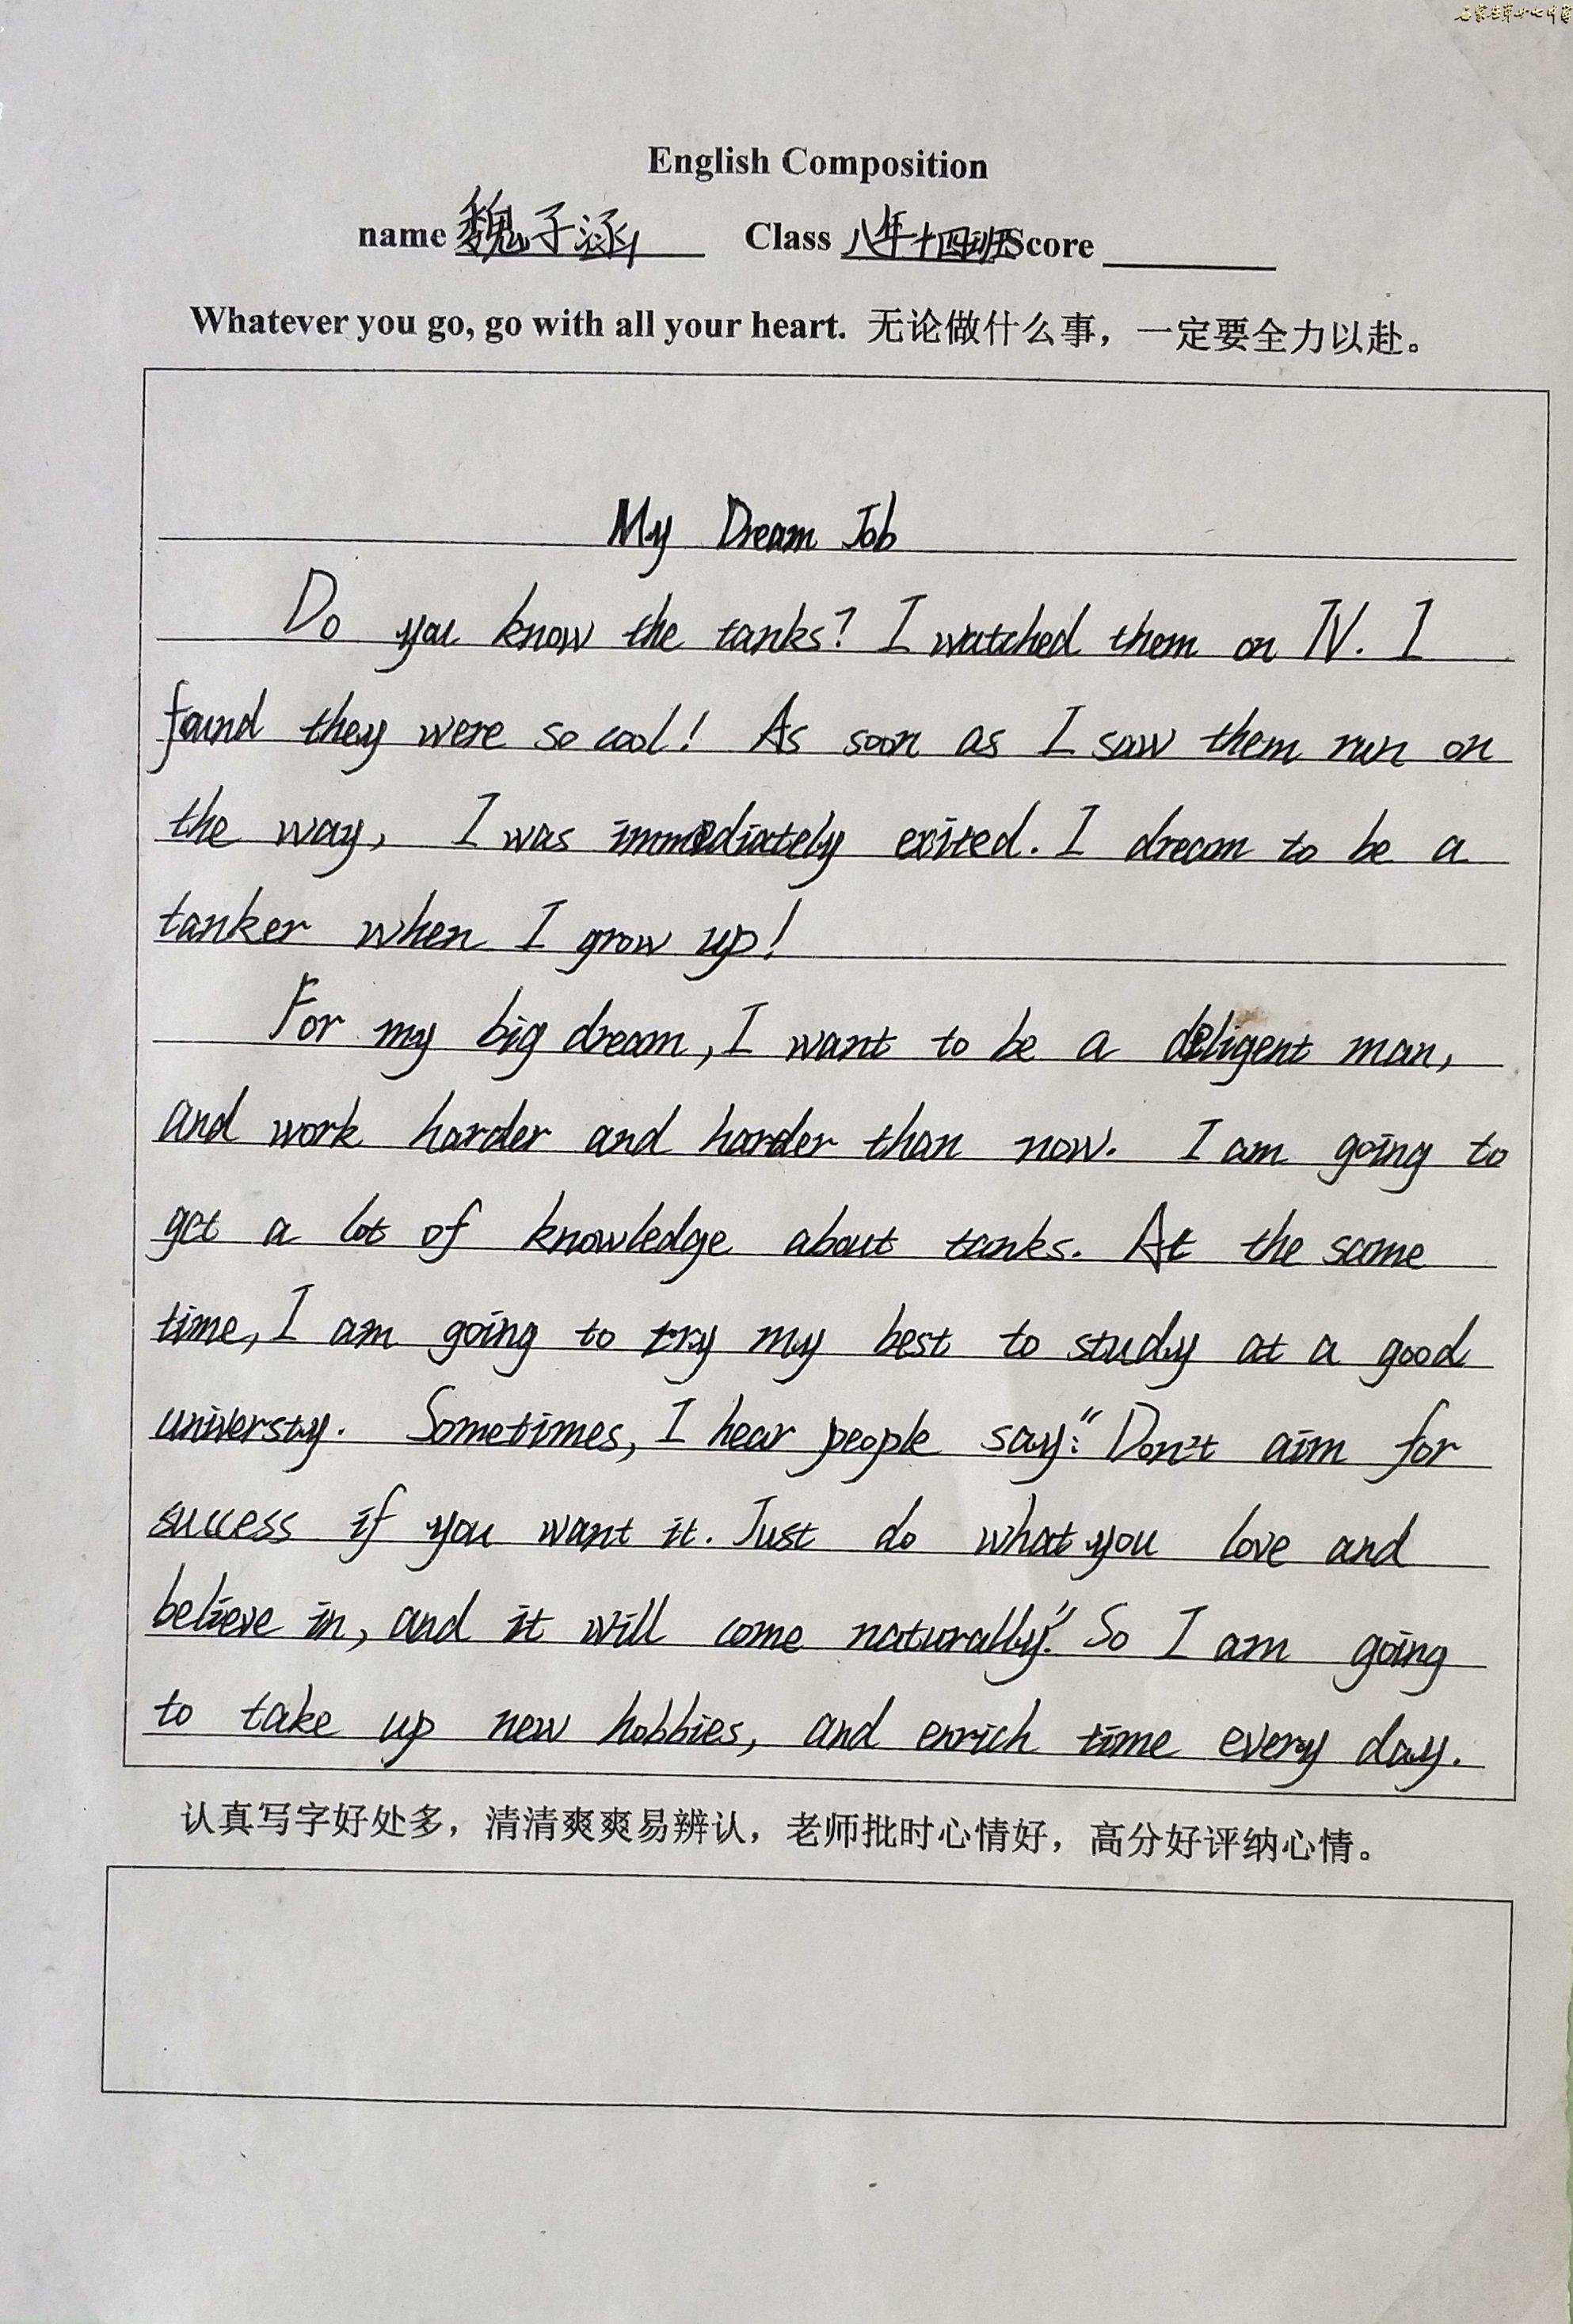 English Composition
name 魏子涵 Class 八年十四班 Score
Whatever you go, go with all your heart. 无论做什么事，一定要全力以赴。
My Dream Job
Do you know the tanks? I watched them on TV. I
found they were so cool! As soon as I saw them run on
the way, I was immediately exited. I dream to be a
tanker when I grow up!
For my big dream, I want to be a deligent man,
and work harder and harder than now. I am going to
get a lot of knowledge about tanks. At the same
time, I am going to try my best to study at a good
universty. Sometimes, I hear people say: "Don't aim for
success if you want it. Just do what you love and
believe in, and it will come naturally." So I am going
to take up new hobbies, and enrich time every day.
认真写字好处多，清清爽爽易辨认，老师批时心情好，高分好评纳心情。